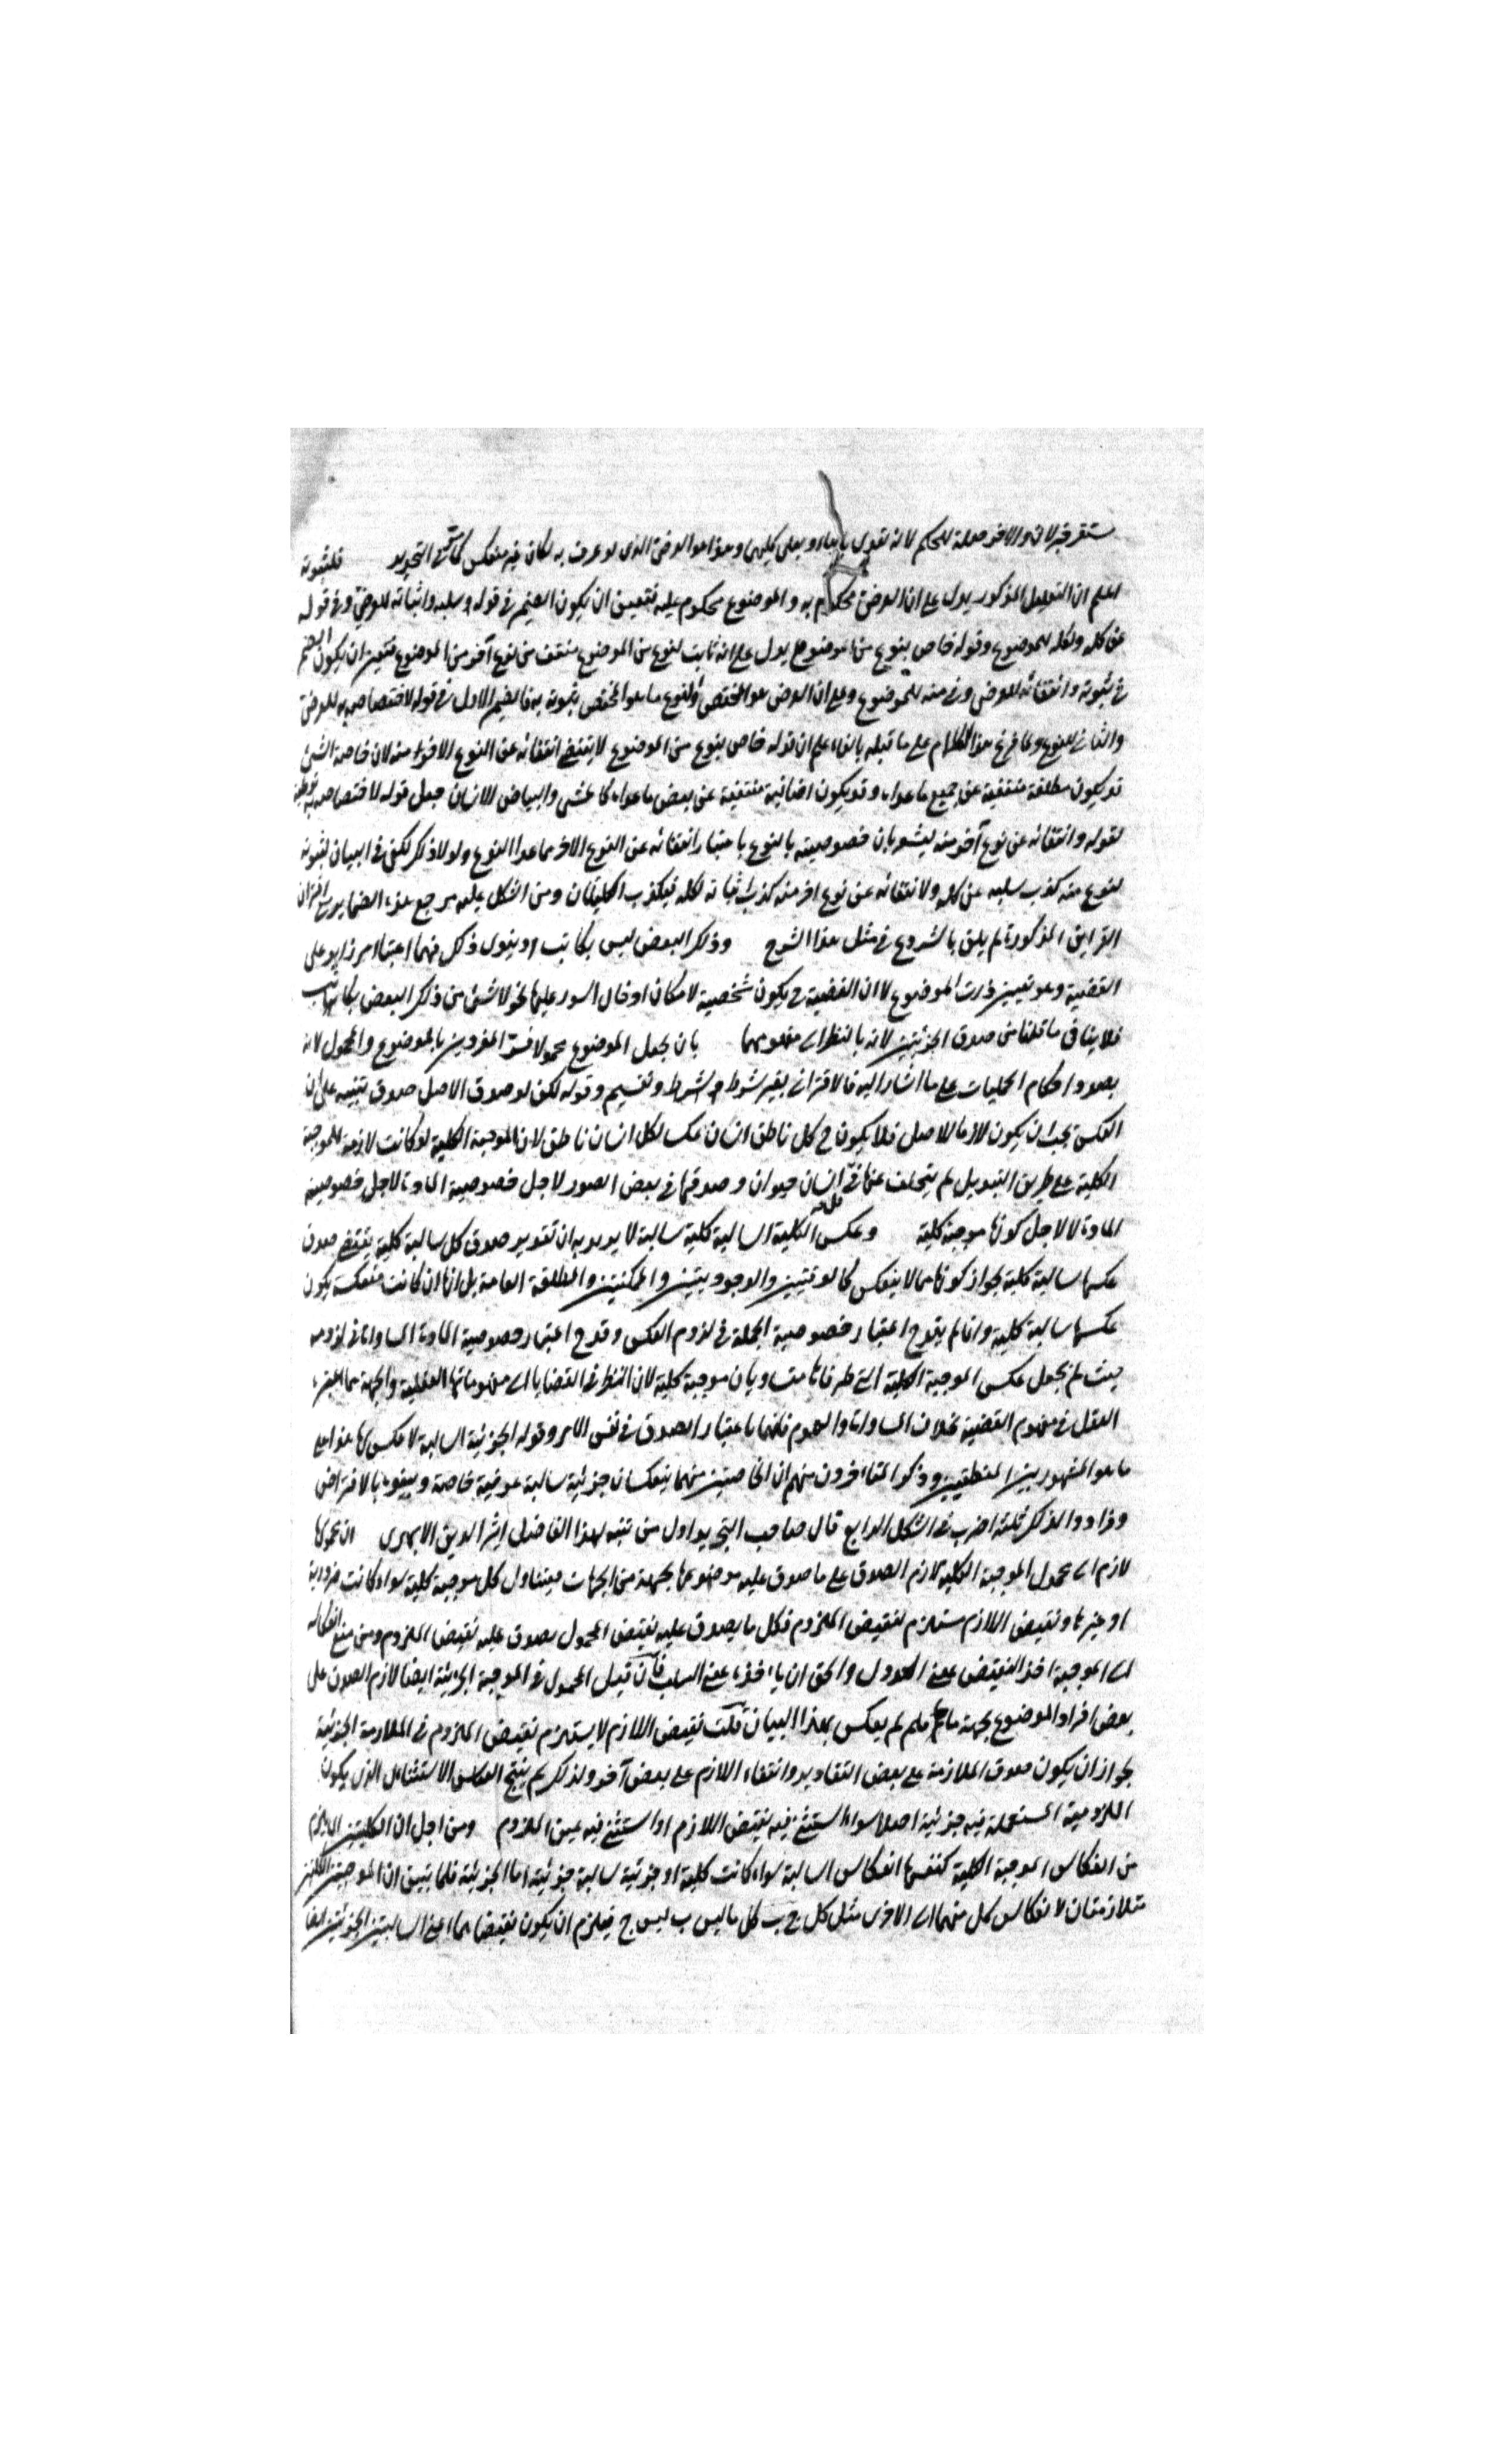 مستقر خبر لان والاخر صلة للحكم لانه تعدى بالباء وبعلى كليهما وهذا هو العرضى الذى لو عرف به لكان غير منعكس كما فى التجريد فلثبوته
اعلم ان التعليل المذكور يدل على ان العرضى محكوم به والموضوع محكوم عليه فتعين ان يكون الضمير فى قوله وسلبه واثباته للعرضى وفى قوله
عن كله ولكله للموضوع وقوله خاص بنوع من الموضوع يدل على انه ثابت لنوع من الموضوع منتف عن نوع آخر من الموضوع فتعين ان يكون الضمير
فى ثبوته وانتفائه للعرضى وفى منه للموضوع وعلى ان العرضى هو المختص والنوع ما هو المختص ثبوته به فالضمير الاول فى قوله لاختصاصه به للعرضى
والثانى للنوع ولما فرع هذا الكلام على ما قبله بالفاء علم ان قوله خاص بنوع من الموضوع لا يقتضى انتفائه عن النوع الاخر منه لان خاصة الشئ
قد يكون مطلقة منتفية عن جميع ما عداه وقد يكون اضافية منتفية عن بعض ما عداه كالمشى والبياض للانسان جعل قوله لاختصاصه به توطئة
لقوله وانتفائه عن نوع آخر منه ليشعر بان خصوصيته بالنوع باعتبار انتفائه عن النوع الاخر مما عدا النوع ولولا ذلك لكفى فى البيان لثبوته
لنوع منه كذب سلبه عن كله ولانتفائه عن نوع اخر منه كذب اثباته لكله فيكذب الكليتان ومن اشكل عليه مرجع هذه الضماير مع اقتران
القراين المذكورة لم يلق بالشروع فى مثل هذا الشرح وذلك البعض ليس بكاتب او يقول ذلك فيهما اعتبار امر زايد على
القضية وهو تعيين ذات الموضوع لا ان القضية ح يكون شخصية لامكان ادخال السور عليها نحو لا شئ من ذلك البعض بكاتب
فلا ينافى ما قلنا من صدق الجزئيتين لانه بالنظر الى مفهومهما بان يجعل الموضوع محمولا فسر المفردين بالموضوع والمحمول لانه
بصدد احكام الحمليات على ما اشار اليه فالاقترانى بغير شرط وشرط وتقسيم وقوله لكن لو صدق الاصل صدق تنبيه على ان
العكس يجب ان يكون لازما للاصل فلا يكون ح كل ناطق انسان عكسا لكل انسان ناطق لان الموجبة الكلية لو كانت لازمة للموجبة
الكلية على طريق التبديل لم يتخلف عنها فى كل انسان حيوان وصدقها فى بعض الصور لاجل خصوصية المادة لاجل خصوصية
المادة لا لاجل كونها موجبة كلية وعكس الكلية السالبة كلية سالبة لا يريد به ان تقدير صدق كل سالبة كلية يقتضى صدق
عكسها سالبة كلية لجواز كونها مما لا ينعكس كالوقتيتين والوجوديتين والممكنتين والمطلقة العامة بل انها ان كانت منعكسة يكون
عكسها سالبة كلية وانما لم يقدح اعتبار خصوصية الجملة فى لزوم العكس وقدح اعتبار خصوصية المادة المساواة فى لزومه
حيث لم يجعل عكس الموجبة الكلية التى طرفاها متساويان موجبة كلية لان النظر فى القضايا الى مفهوماتها العقلية والجهة مما اعتبره
العقل فى مفهوم القضية بخلاف المساواة والعموم فانهما باعتبار الصدق فى نفس الامر وقوله الجزئية السالبة لا عكس لها هذا على
ما هو المشهور بين المنطقيين وذكر المتاخرون منهم ان الخاصتين منهما ينعكسان جزئية سالبة عرفية خاصة وبينوه بالافتراض
وزادوا لذلك ثلثة اضرب فى الشكل الرابع قال صاحب التجريد اول من تنبه لهذا الفاضل اثير الدين الابهرى ان محمولها
لازم اى محمول الموجبة الكلية لازم الصدق على ما صدق عليه موضوعها بجهة من الجهات فيتناول كل موجبة كلية سواء كانت ضرورية
او غيرها ونقيض اللازم مستلزم لنقيض الملزوم فكل ما يصدق عليه نقيض المحمول يصدق عليه نقيض الملزوم ومن منع انعكاس
اى الموجبة اخذ النقيض بمعنى العدول والحق ان ياخذه بمعنى السلب فان قيل المحمول فى الموجبة الجزئية ايضا لازم الصدق على
بعض افراد الموضوع بجهة ما فلم لم يعكس بهذا البيان قلت نقيض اللازم لا يستلزم نقيض الملزوم فى الملازمة الجزئية
لجواز ان يكون صدق الملازمة على بعض التقادير وانتفاء اللازم على بعض آخر ولذلك لم ينتج القياس الاستثنائى الذى يكون
اللزومية المستعملة فيه جزئية اصلا سواء استثنى فيه نقيض اللازم او استثنى فيه عين الملزوم ومن اجل ان الكليتين
من انعكاس الموجبة الكلية كنفسها انعكاس السالبة سواء كانت كلية او جزئية سالبة جزئية اما الجزئية فلما تبين ان الموجبتين الكليتين
متلازمتان لانعكاس كل منهما الى الاخرى مثل كل ج ب كل ما ليس ب ليس ج فيلزم ان يكون نقيضاهما اعنى السالبتين الجزئيتين ايضا